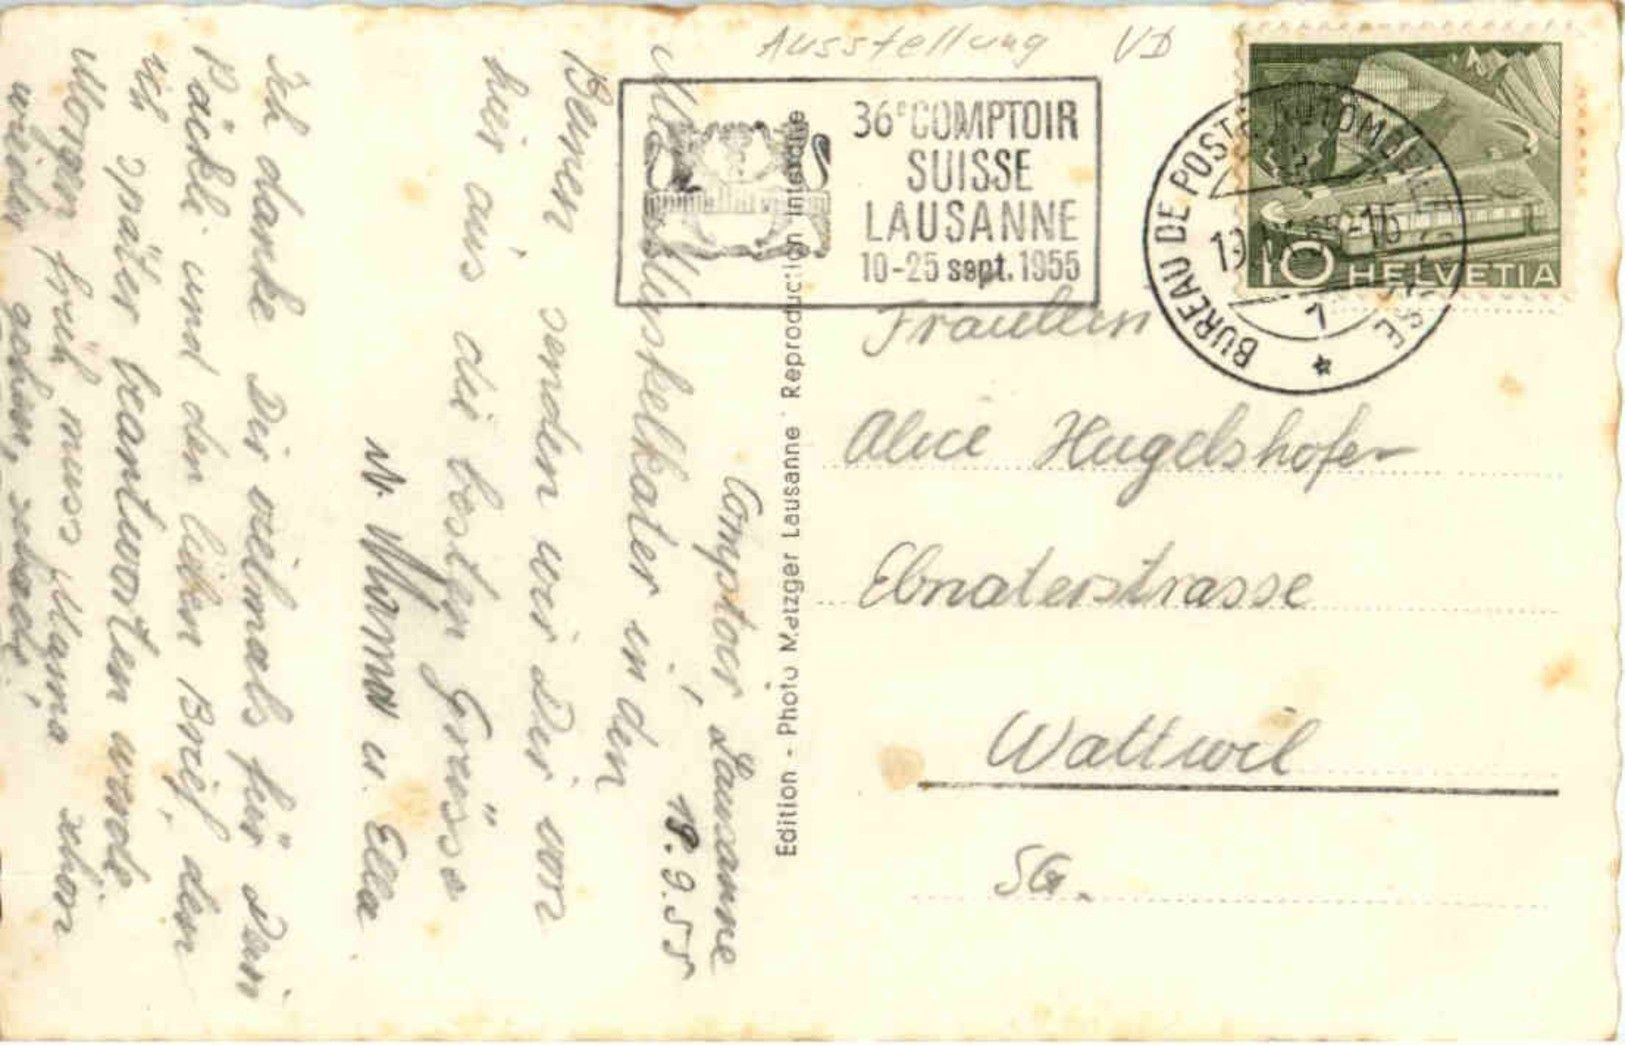 Ausstellung VD
36e COMPTOIR
SUISSE
LAUSANNE
10-25 sept. 1955
BUREAU DE POSTE AUTOMOBILE SUISSE
1
10 HELVETIA
Comptoir Lausanne
18.9.55
Mit Muskelkater in den
Beinen senden wir Dir von
hier aus die besten Grüsse
Mama u. Ella
Ich danke Dir vielmals für Dein
Päckli und den lieben Brief, den
ich später beantworten werde
Morgen früh muss Mama schon
wieder gehen, schade!
Edition - Photo Metzger Lausanne Reproduction interdite
Fräulein
Alice Hugelshofer
Ebnaterstrasse
Wattwil
SG.